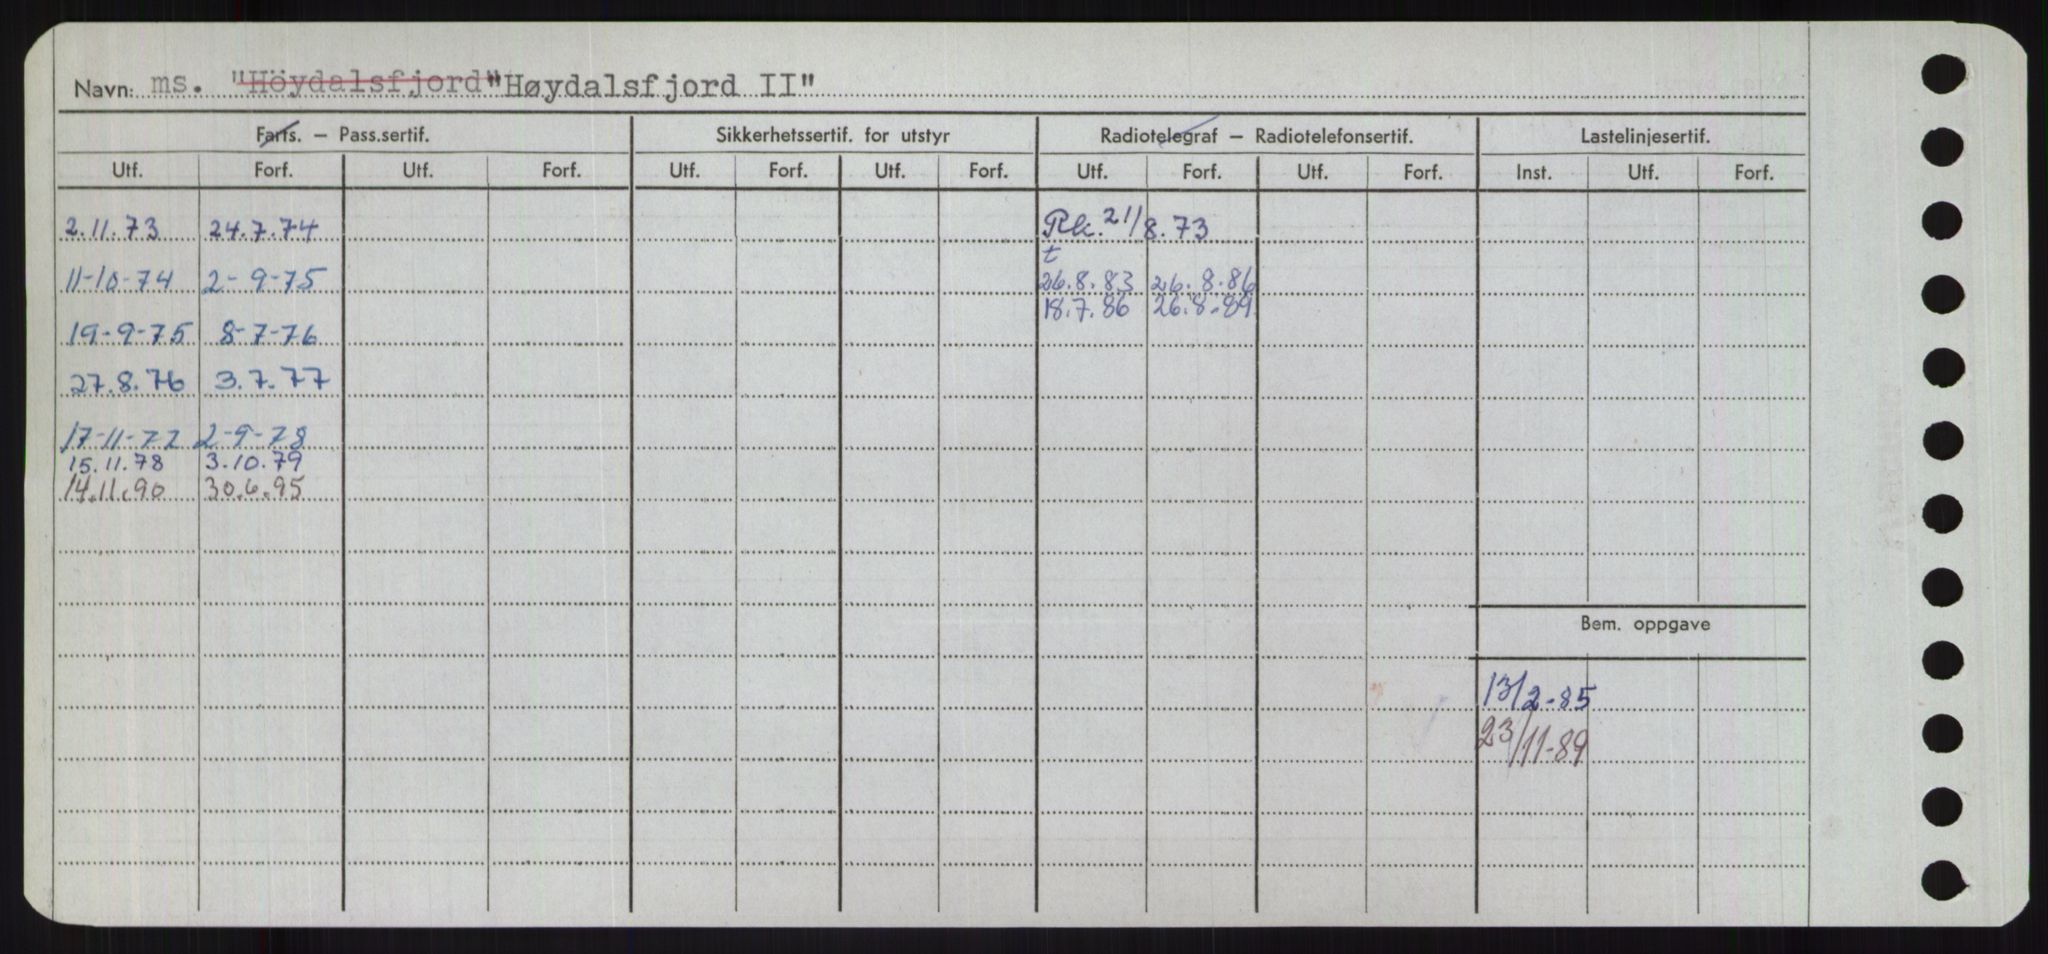 Navn: ms. "Höydalsfjord" "Høydalsfjord II"
Farts. — Pass.sertif. Sikkerhetssertif. for utstyr Radiotelegraf — Radiotelefonsertif. Lastelinjesertif.
Utf. Forf. Utf. Forf. Utf. Forf. Utf. Forf. Utf. Forf. Utf. Forf. Inst. Utf. Forf.
2.11.73 24.7.74 Rk. 21/8.73
t
11-10-74 2-9-75 26.8.83 26.8.86
18.7.86 26.8.89
19-9-75 8-7-76
27.8.76 3.7.77
17-11-77 2-9-78
15.11.78 3.10.79
14.11.90 30.6.95
Bem. oppgave
13/2-85
23/11-89